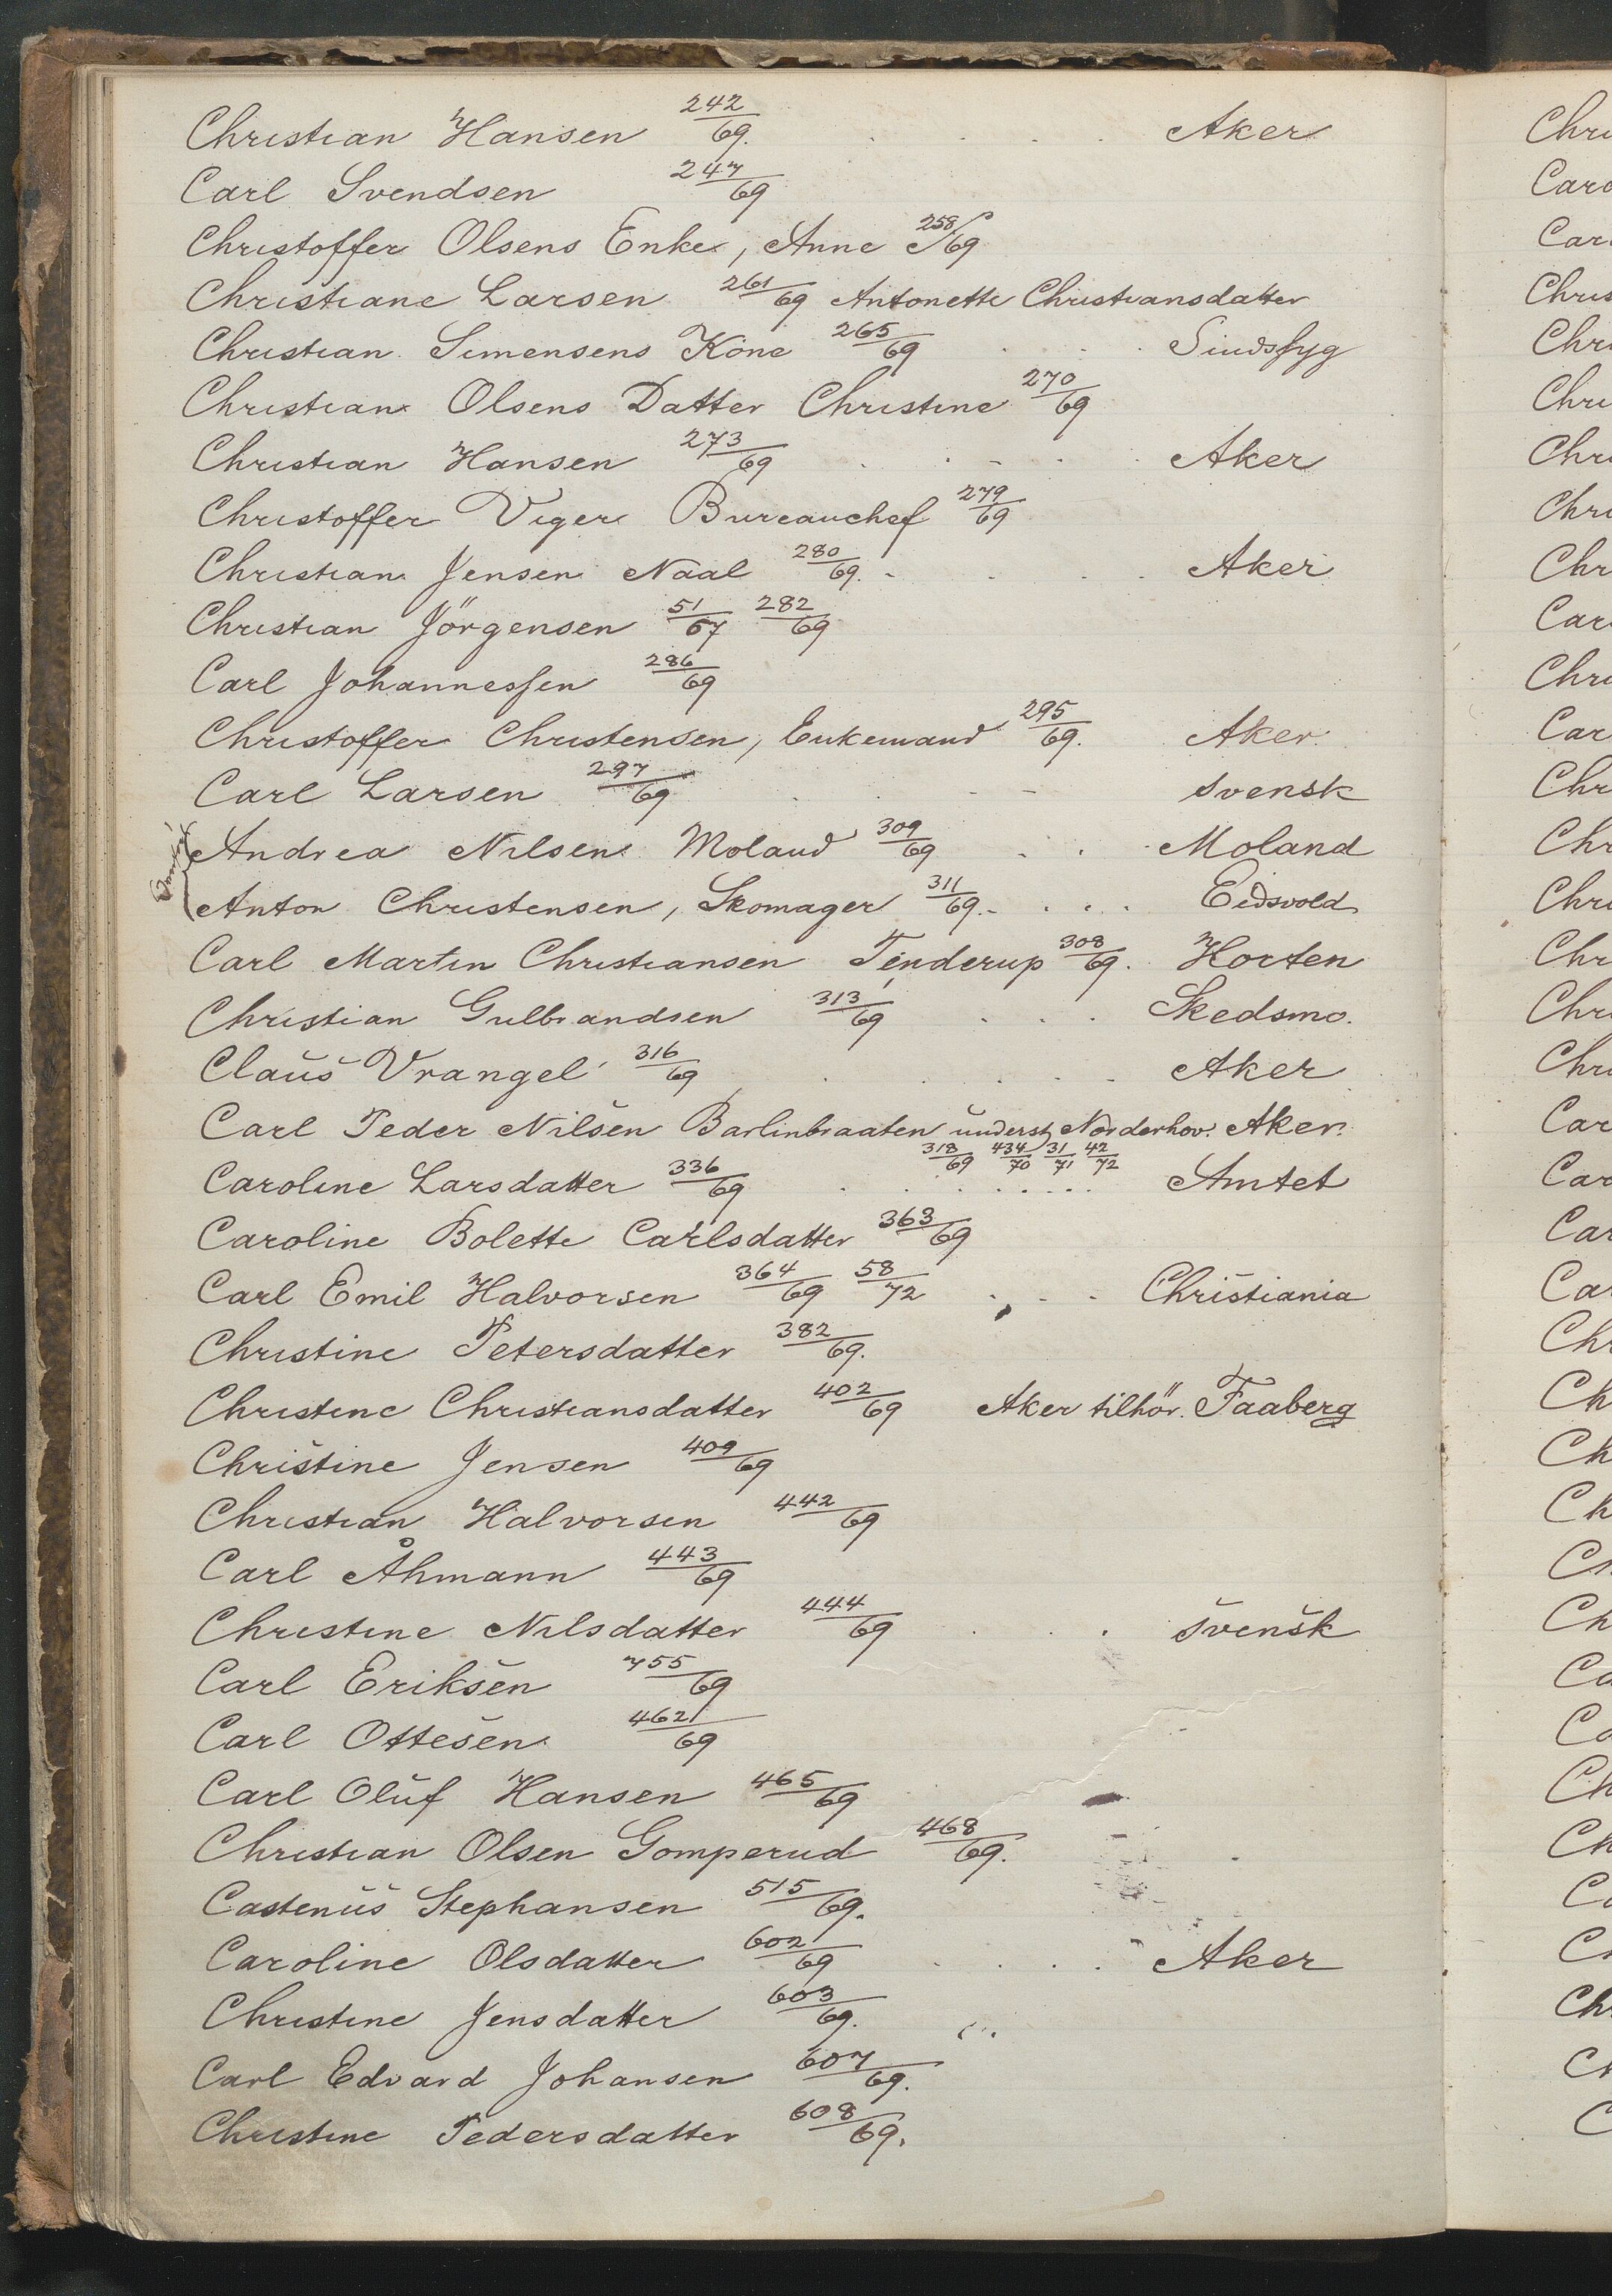 Christian Hansen 242/69. . . . . Aker
Carl Svendsen 247/69
Christoffer Olsens Enke, Anne 258/69
Christiane Larsen 261/69 Antonette Christiansdatter
Christian Simensens Kone 265/69 . . . . Sindssyg
Christian Olsens Datter Christine 270/69
Christian Hansen 273/69 . . . . . Aker
Christoffer Viger Bureauchef 279/69
Christian Jensen Naal 280/69. . . . . Aker
Christian Jörgensen 51/67 282/69
Carl Johannessen 286/69
Christoffer Christensen, Enkemand 295/69. Aker
Carl Larsen 297/69 . . . . svensk
Andrea Nilsen Moland 309/69 . . . Moland
Anton Christensen, Skomager 311/69. . . . . Eidsvold
Carl Martin Christiansen Tenderup 308/69. Horten
Christian Gulbrandsen 313/69 . . . Skedsmo.
Claus Vrangel 316/69 . . . . . Aker
Carl Peder Nilsen Barlinbraaten underst. Norderhov. Aker.
318/69 434/70 31/71 42/72
Caroline Larsdatter 336/69 . . . . . . . Amtet
Caroline Bolette Carlsdatter 363/69
Carl Emil Halvorsen 364/69 58/72 . . . Christiania
Christine Petersdatter 382/69.
Christine Christiansdatter 402/69 Aker tilhör. Faaberg
Christine Jensen 409/69
Christian Halvorsen 442/69
Carl Åhmann 443/69
Christine Nilsdatter 444/69 . . . svensk
Carl Eriksen 455/69
Carl Ottesen 462/69
Carl Oluf Hansen 465/69
Christian Olsen Gomperud 468/69.
Castenus Stephansen 515/69.
Caroline Olsdatter 602/69 . . . . Aker
Christine Jensdatter 603/69.
Carl Edvard Johansen 607/69.
Christine Pedersdatter 608/69.